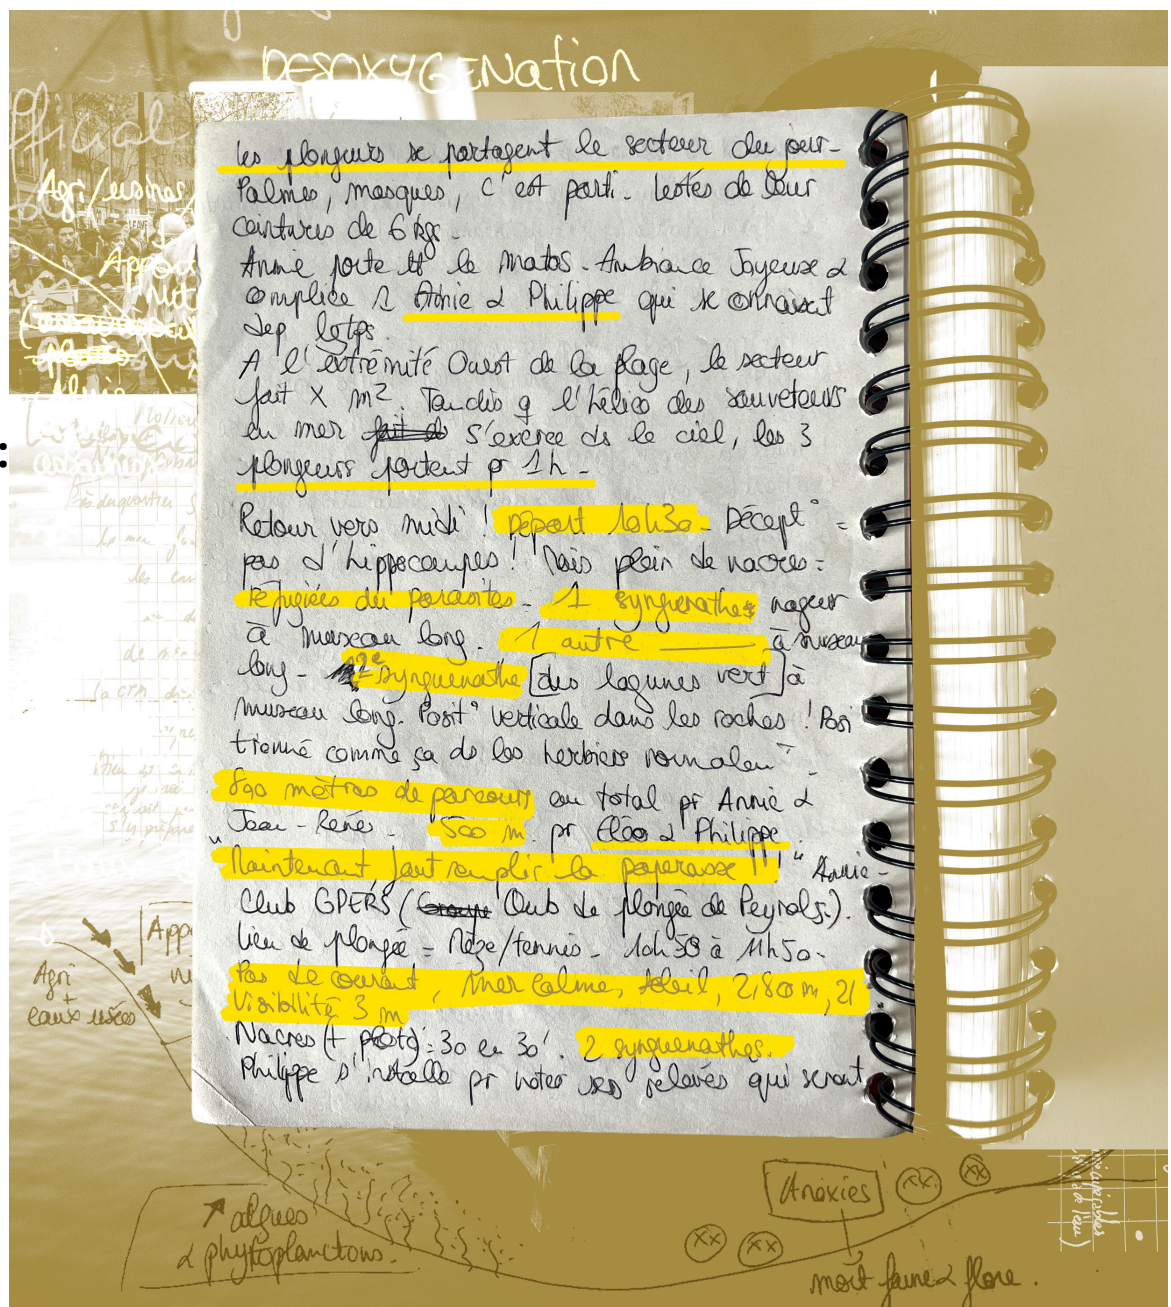 DESOXYGENation
fficial
Agri/usines
les plongeurs se partagent le secteur du jour-
Palmes, masques, c'est parti. lestés de leur
ceintures de 6 kgs-
Annie porte tt le matos. Ambiance Joyeuse &
complice Annie & Philippe qui se connaissent
dep lgtps.
A l'extrémité Ouest de la plage, le secteur
fait X m². Tandis q l'hélico des sauveteurs
en mer s'exerce ds le ciel, les 3
plongeurs partent pr 1h-
Retour vers midi ! Départ 10h30- Décept° =
pas d'hippocampes! Mais plein de nacres=
réfugiées du parasites- 1 syngnathe nageur
à museau long. 1 autre ——— à museau
long- 2e syngnathe [des lagunes vert] à
museau long. Posit° verticale dans les roches ! Posi
tionné comme ça ds les herbiers normalemt.
890 mètres de parcours au total pr Annie &
Jean-René- 500 m. pr Cléo & Philippe
"Maintenant faut remplir la paperasse !!" Annie-
Club GPERS (Groupe Club de plongée de Peyrols).
lieu de plongée = Naze/tennis- 10h50 à 11h50-
Pas de courant, Mer calme, soleil, 2,80m, 21
Visibilité 3 m
Nacres (+ photo) : 30 en 30'. 2 syngnathes.
Philippe s'installe pr noter ses relevés qui seront
App
Agri
+
eaux usées
↗ algues
& phytoplanctons.
Anoxies
XX
XX
XX
XX
mort faune & flore.